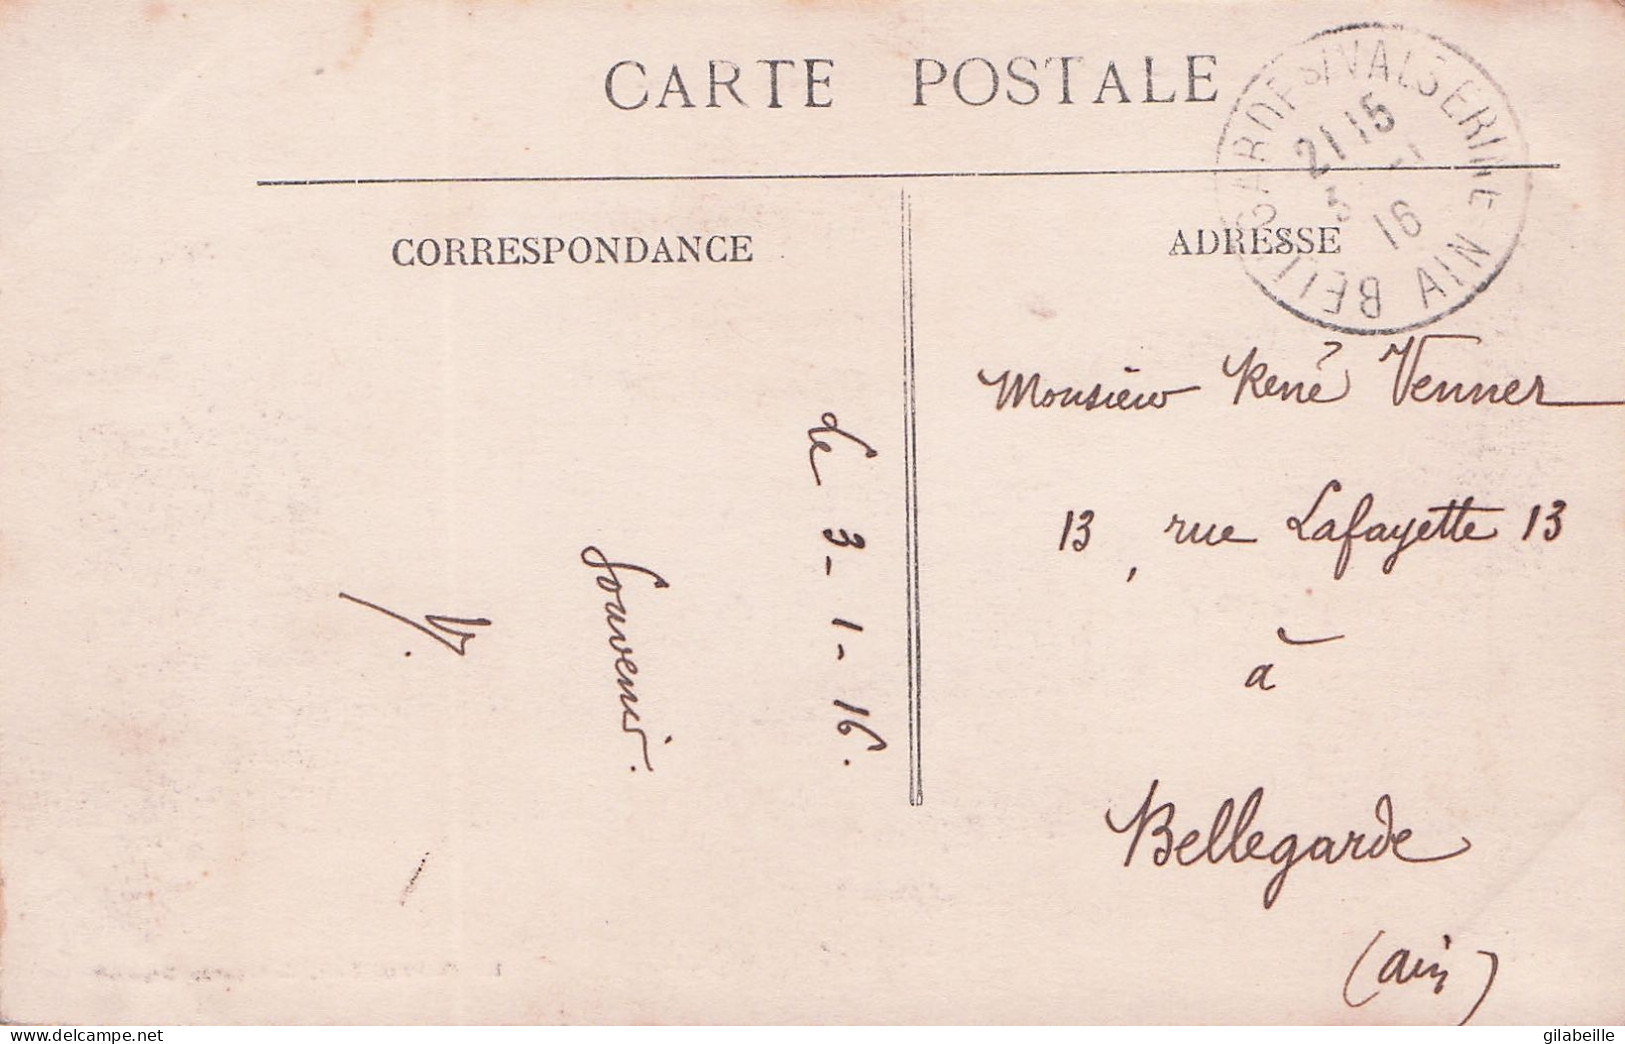 CARTE POSTALE
BELLEGARDE S/VALSERINE
AIN
21 15
3 -1
16
CORRESPONDANCE
ADRESSE
Le 3-1-16.
Souvenir.
Monsieur René Venner
13, rue Lafayette 13
à
Bellegarde
(Ain)
gilabeille